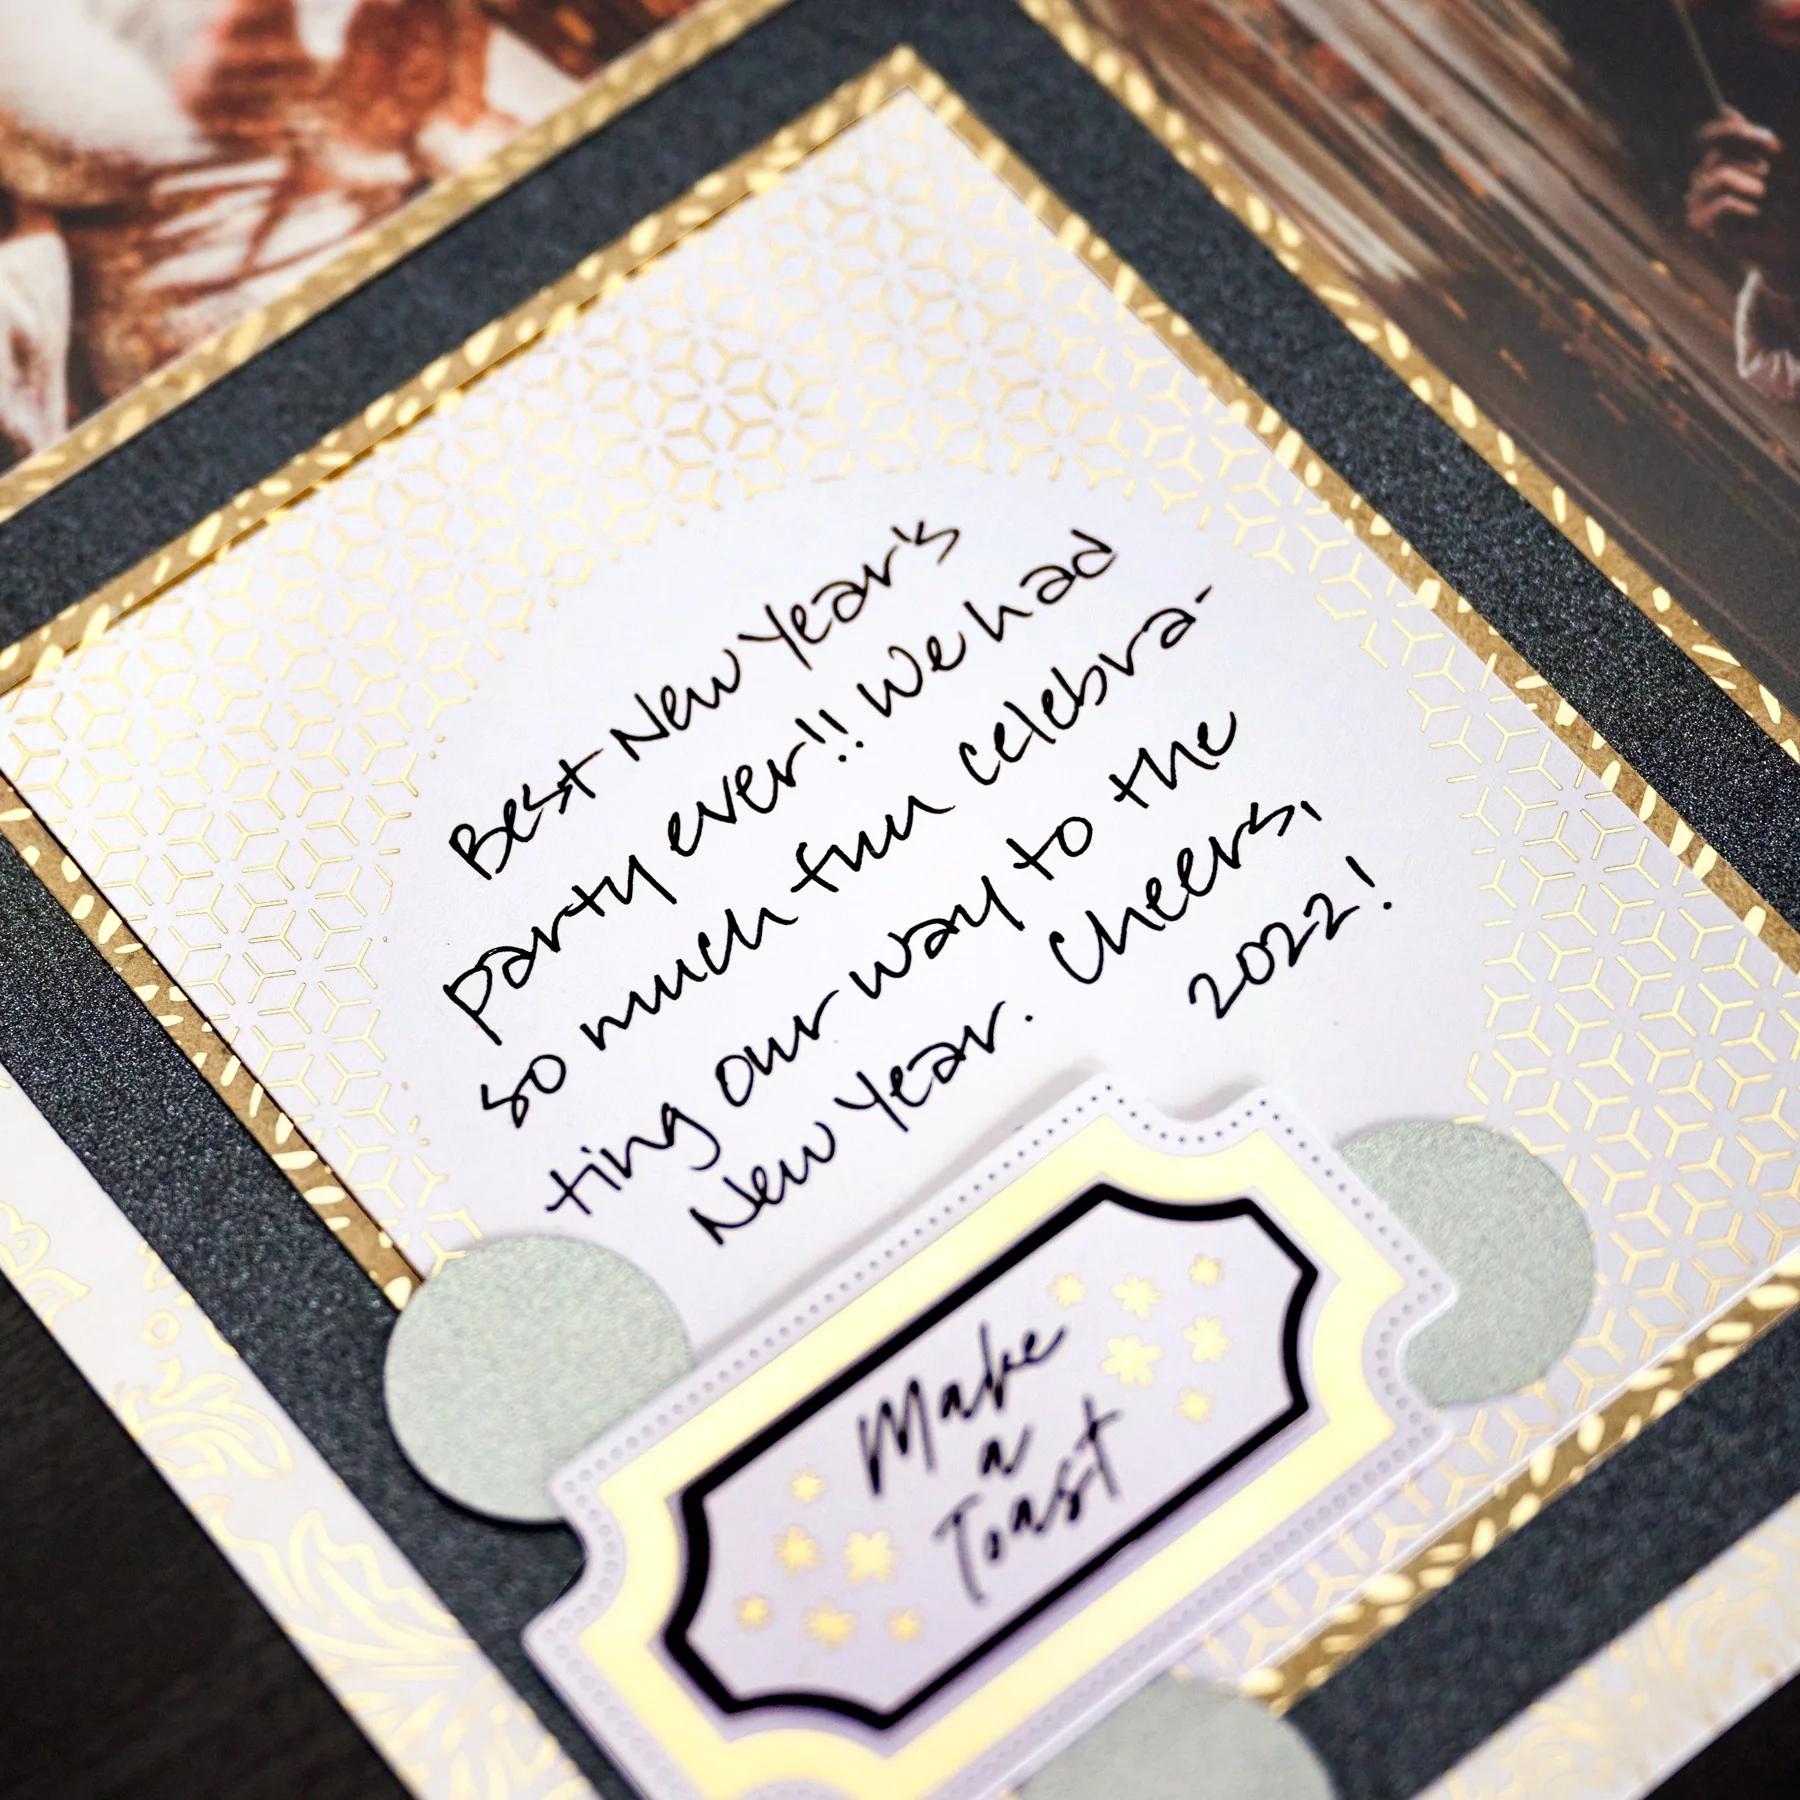 Best New Year's
party ever!! We had
so much fun celebra-
ting our way to the
New Year. Cheers,
2022!
Make
a
Toast